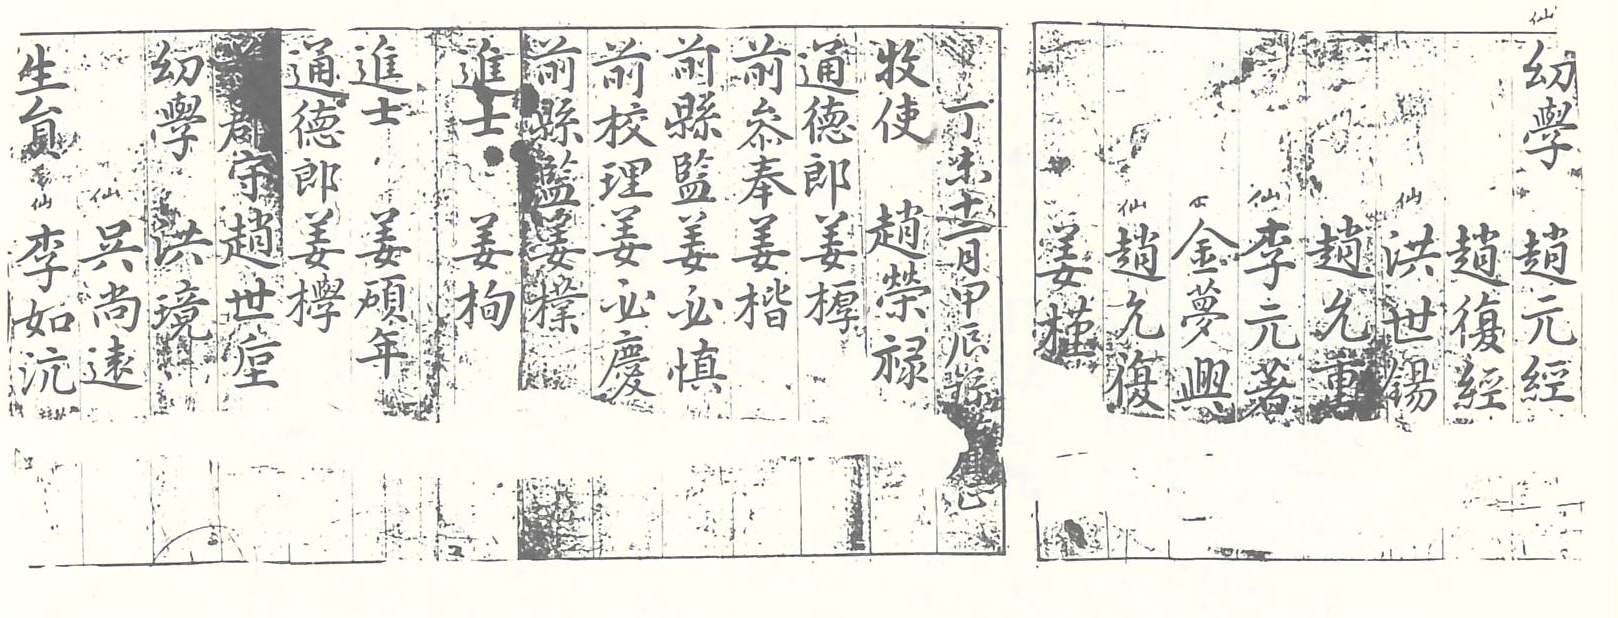 仙
幼學 趙元經
趙復經
仙 洪世錫
趙允重
仙 李元著
金夢興
仙 趙允復
姜檍
丁未十二月甲辰
牧使 趙榮祿
通德郎姜㮤
前叅奉姜楷
前縣監姜必慎
前校理姜必慶
前縣監姜檏
進士 姜栒
進士 姜碩年
通德郎姜㰒
郡守趙世垕
幼學 洪境
仙 吳尚遠
生員 仙 李如沆